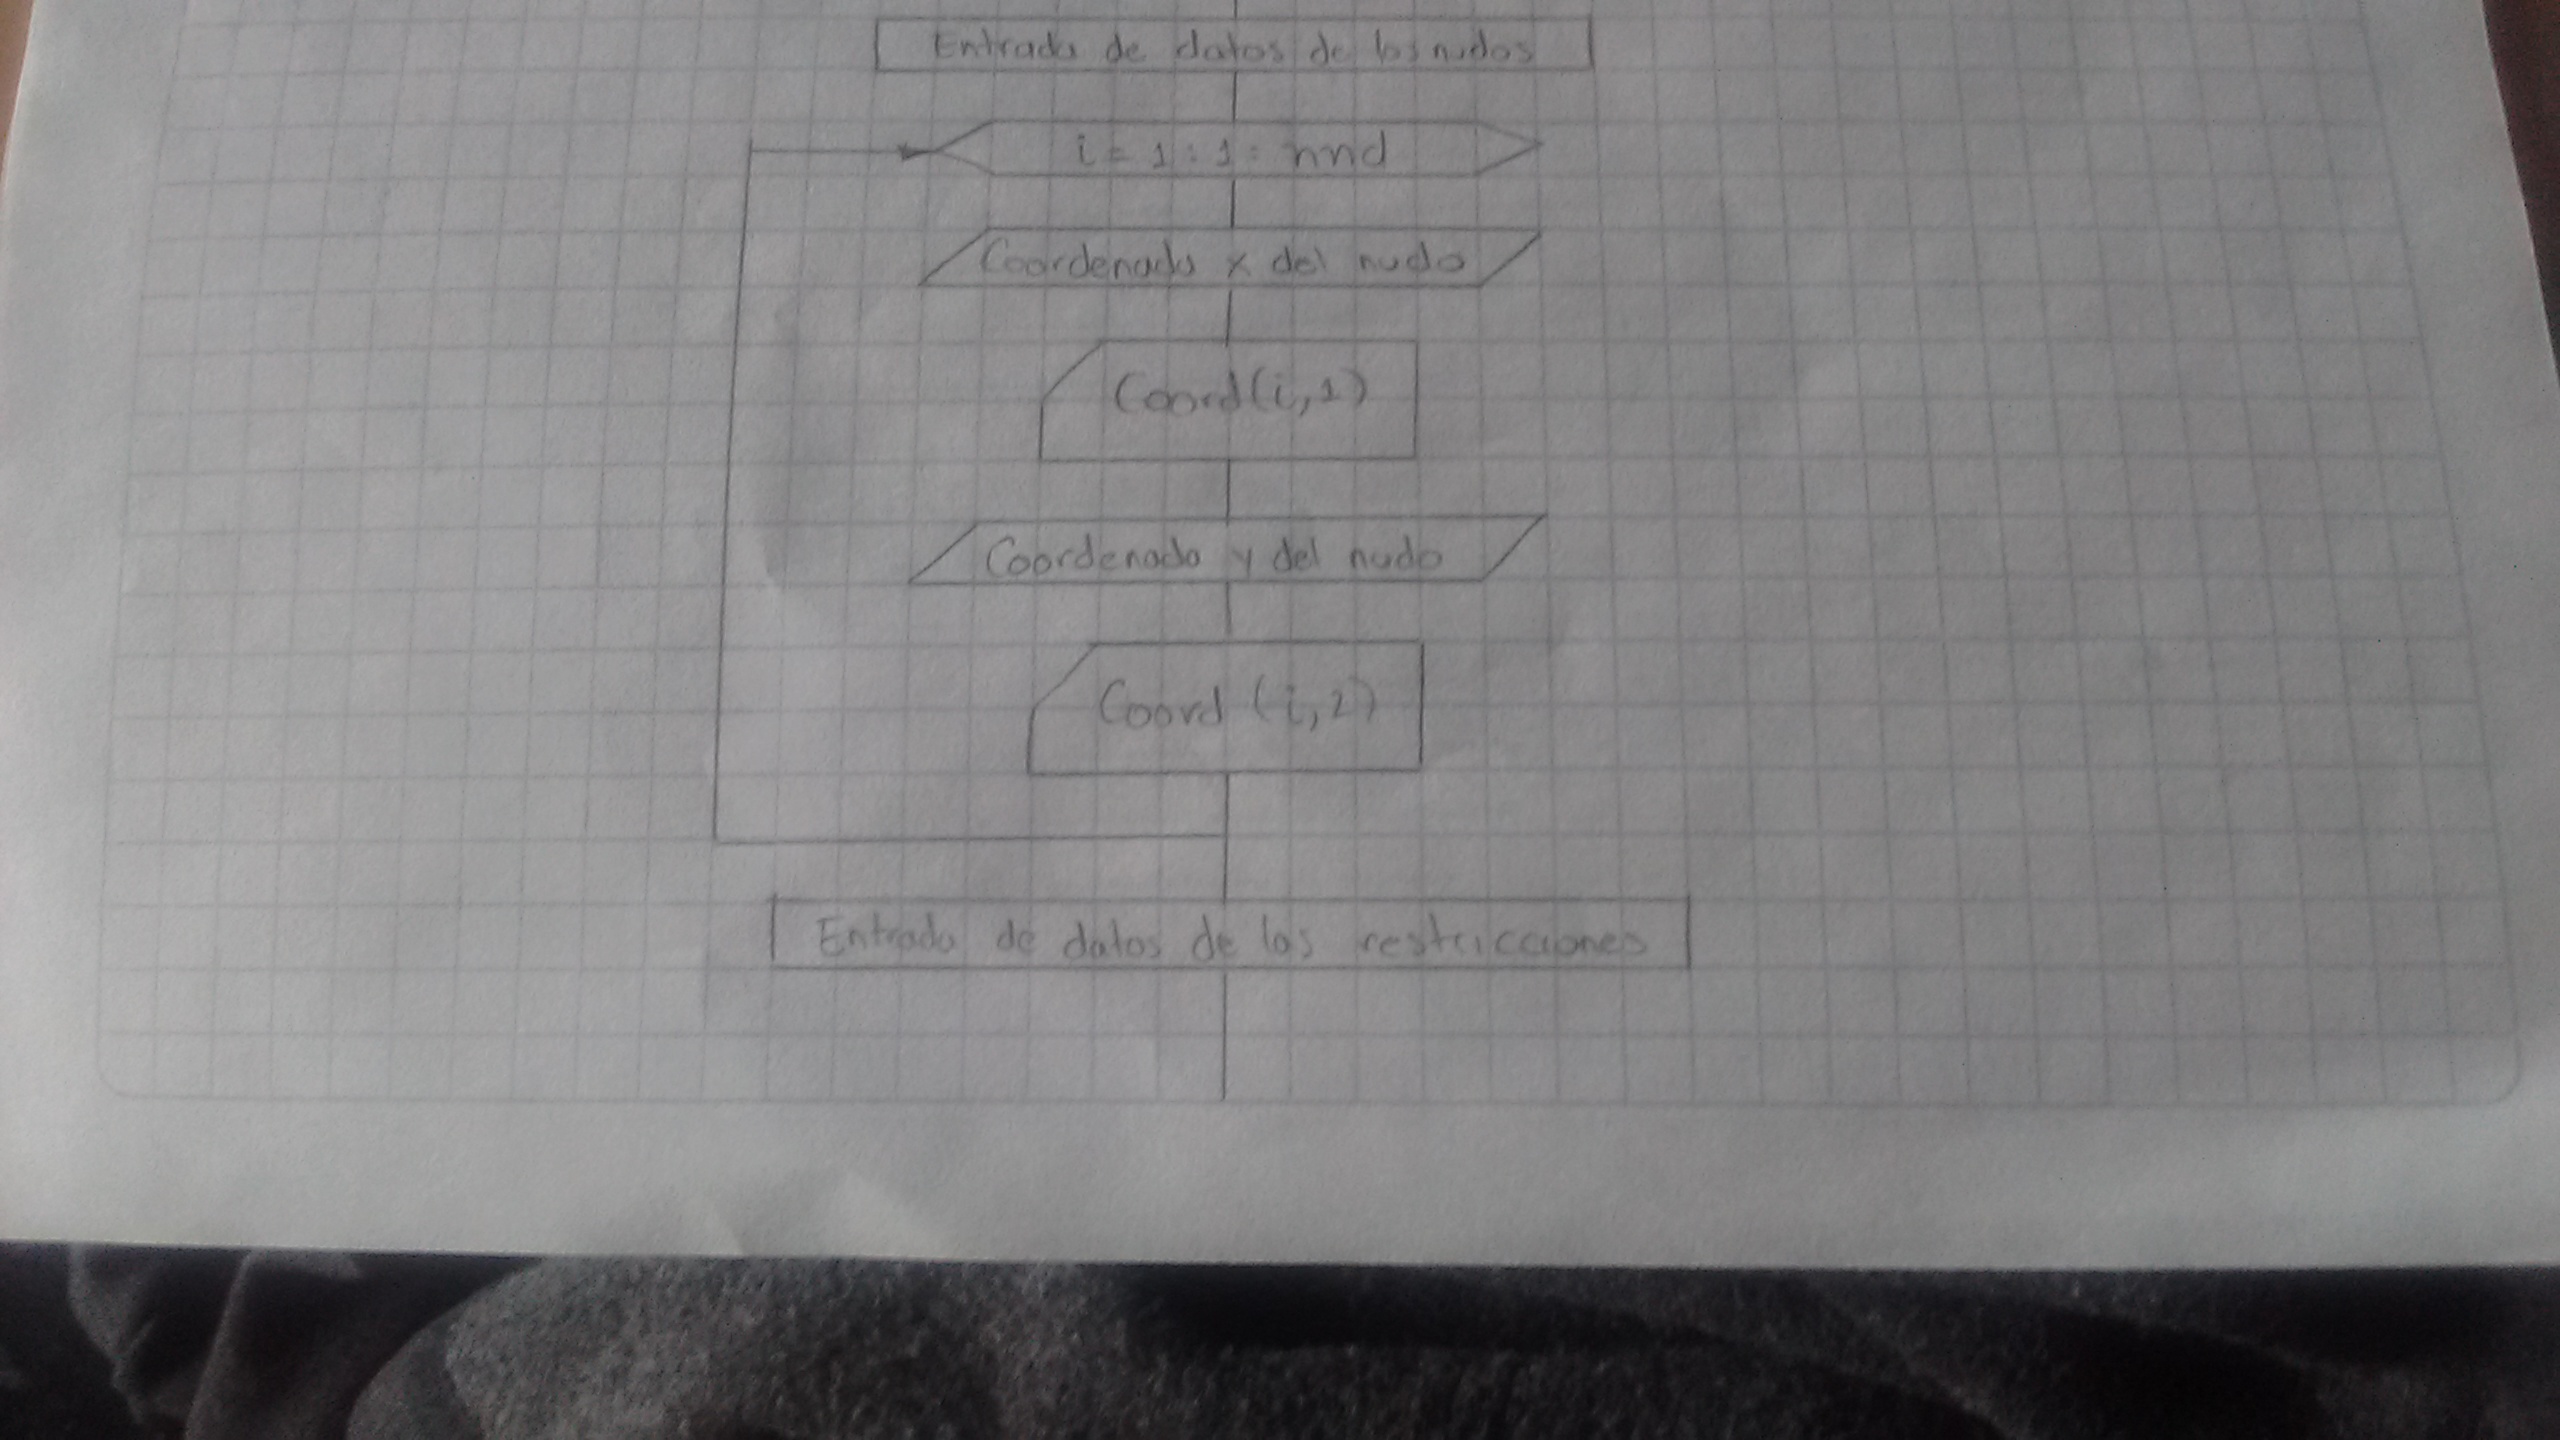 Entrada de datos de los nudos
i = 1 : 1 : nnd
Coordenada x del nudo
Coord(i,1)
Coordenada y del nudo
Coord (i,2)
Entrada de datos de las restricciones